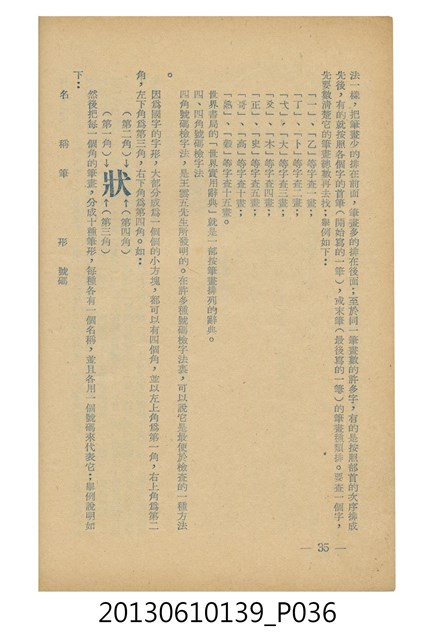 法一樣，把筆畫少的排在前面，筆畫多的排在後面；至於同一筆畫數的許多字，有的是按照部首的次序排成
先後，有的就按照各個字的首筆（開始寫的一筆），或末筆（最後寫的一筆）的筆畫種類排。要查一個字，
先要數清楚它的筆畫總數再去找；舉例如下：
「一」、「乙」等字查一畫；
「丁」、「卜」等字查二畫；
「弋」、「大」等字查三畫；
「殳」、「木」等字查四畫；
「正」、「史」等字查五畫；
「哥」、「高」等字查十畫；
「熟」、「穀」等字查十五畫。
世界書局的「世界實用辭典」就是一部按筆畫排列的辭典。
四、四角號碼檢字法
四角號碼檢字法，是王雲五先生所發明的。在許多種號碼檢字法裏，可以說它是最便於檢查的一種方法
。
因爲國字的字形，大部分成爲一個個的小方塊，都可以有四個角，並以左上角爲第一角，右上角爲第二
角，左下角爲第三角，右下角爲第四角。如：
（第二角）→ ←（第四角）
狀
（第一角）→ ←（第三角）
然後把每一個角的筆畫，分成十種筆形，每種各有一個名稱，並且各用一個號碼來代表它；舉例說明如
下：
名 稱 筆 形 號碼
— 35 —
20130610139_P036